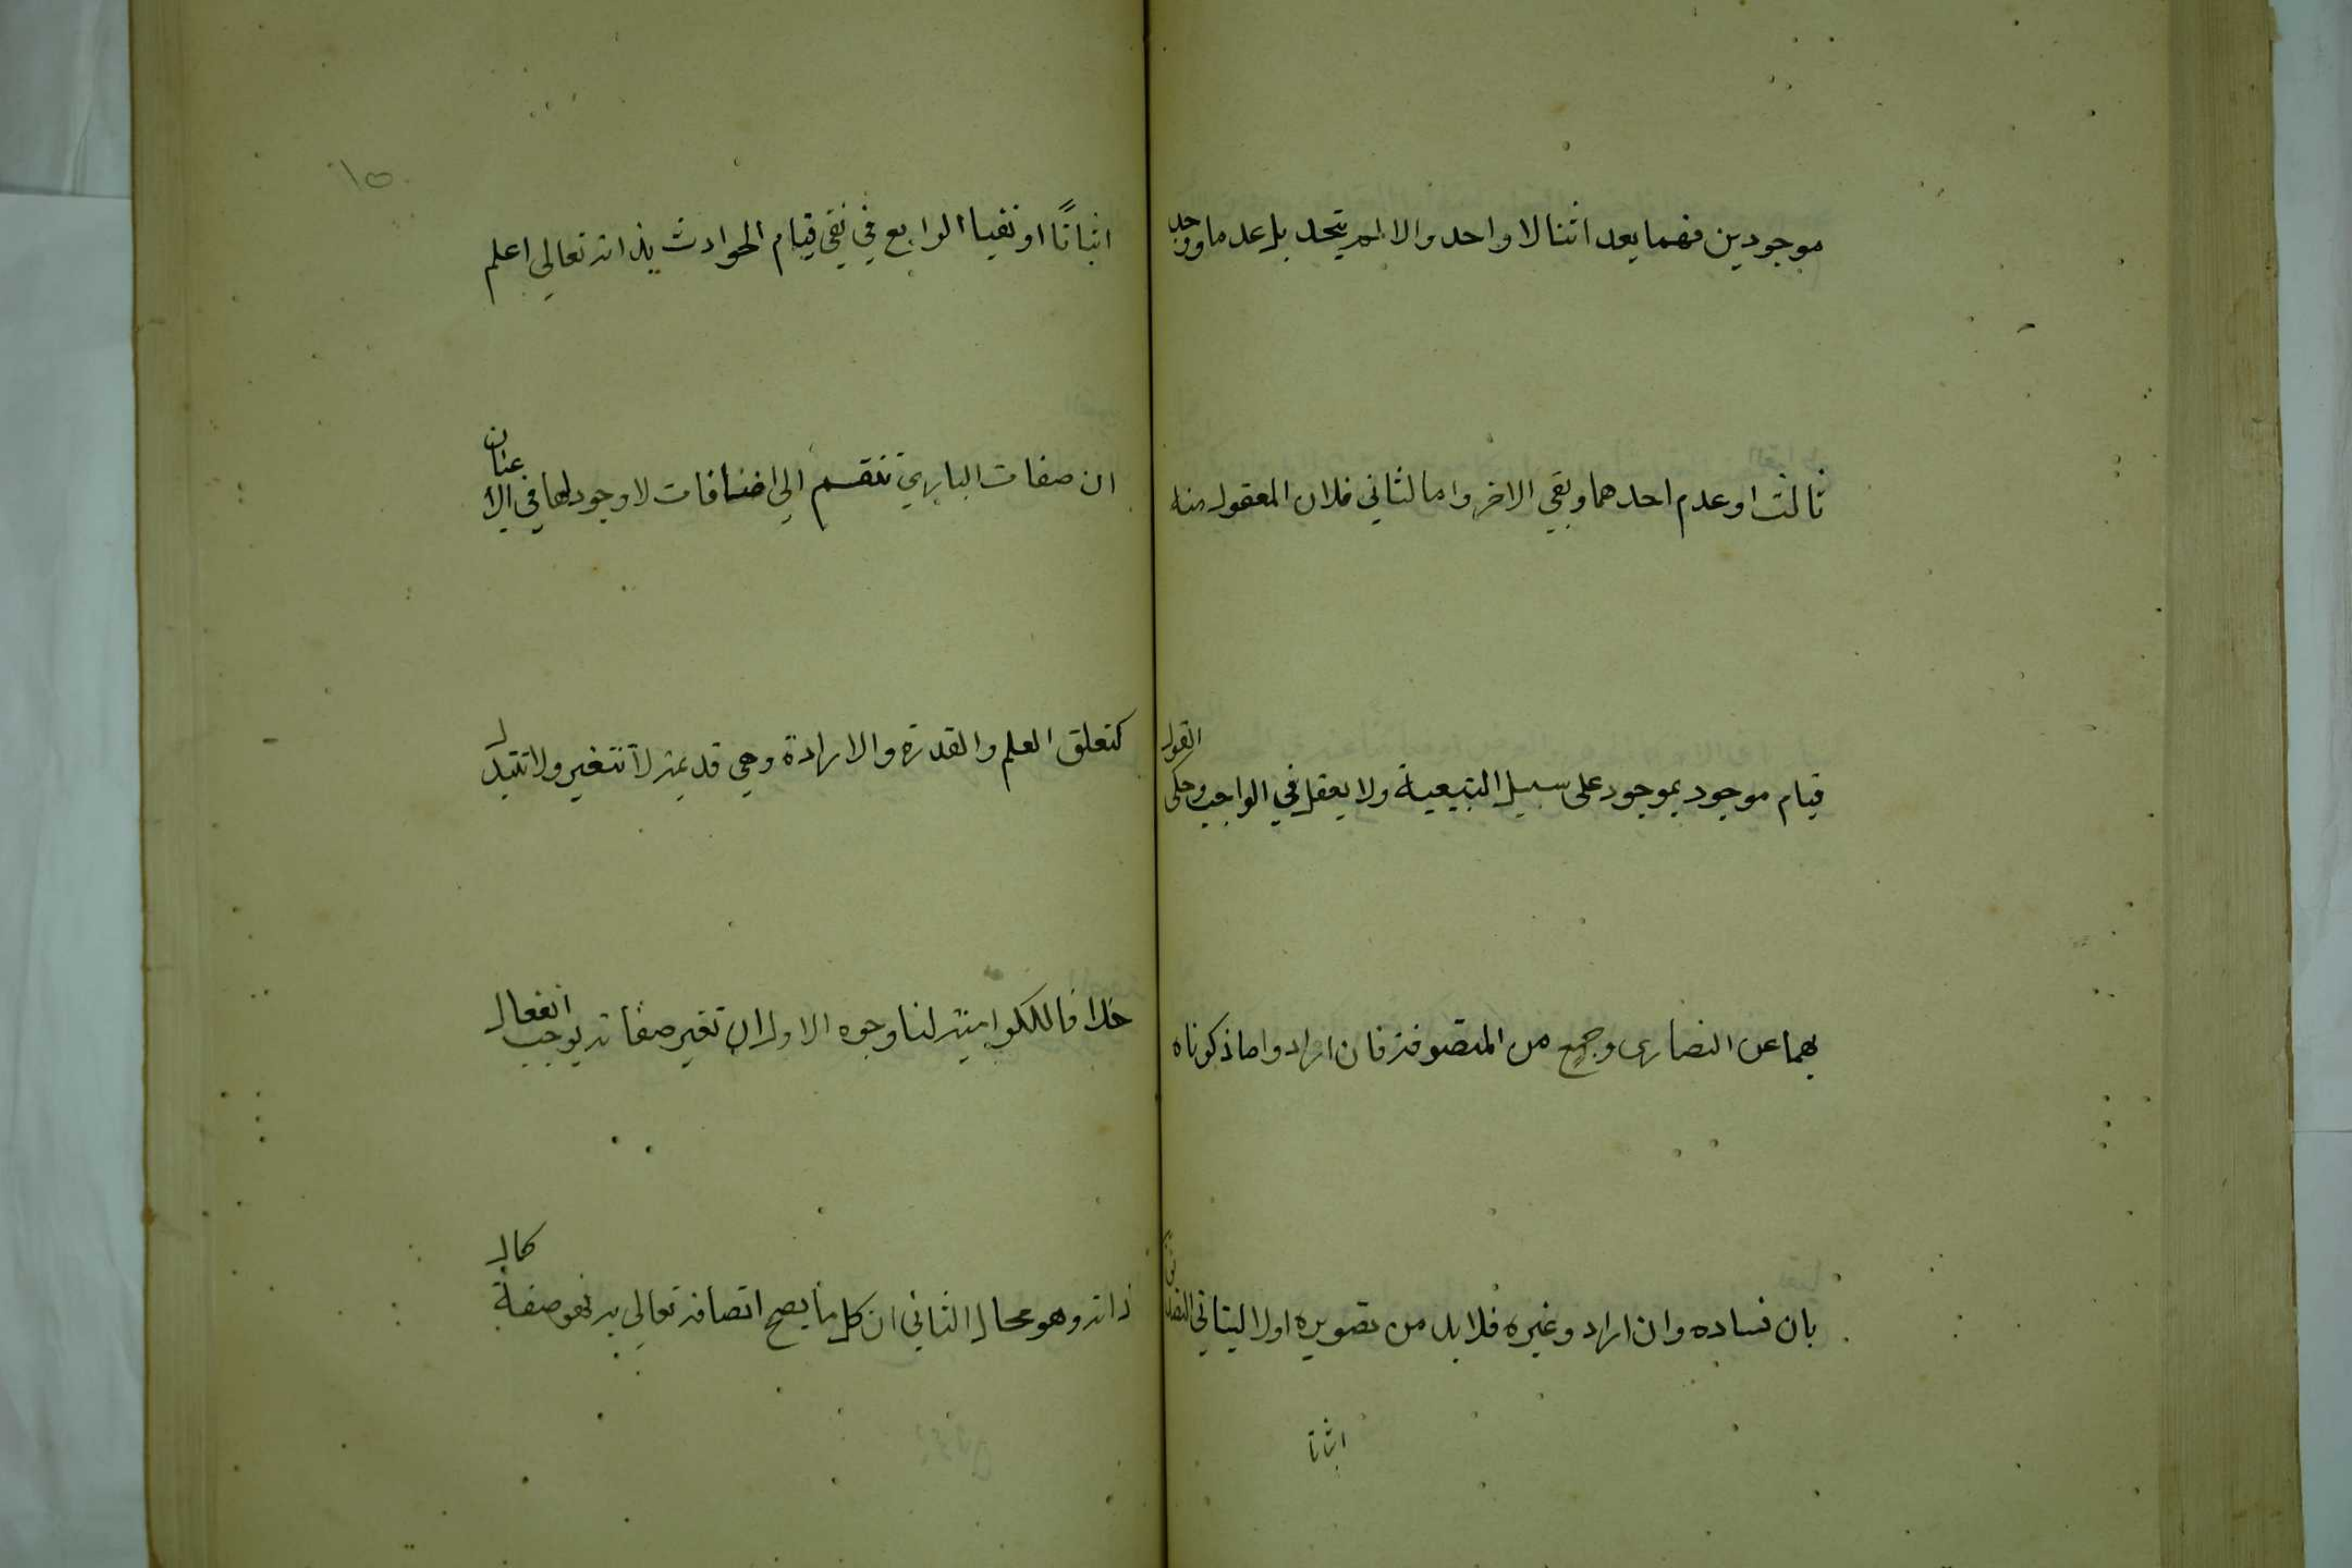 موجودين فهما بعد اثنا لا واحد والا لم يتحد بل عدما ووجد
ثالث او عدم احدهما وبقي الاخر واما لثاني فلان المعقول منه
قيام موجود بموجود على سبيل التبيعية ولا يعقل في الواجب وحكى القول
بهما عن النصارى وجمع من المتصوفة فان ارادوا ما ذكرناه
بان فساده وان ارادو غيره فلا بد من تصويره اولا ليتاتي التصديق
اثباتا
١٥
اثباتًا او نفيا الرابع في نفي قيام الحوادث بذاته تعالى اعلم
ان صفات الباري تنقسم الى اضافات لا وجود لها في الاعيان
كتعلق العلم والقدرة والارادة وهي قديمة لا تتغير ولا تتبدل
خلافا للكرامية لنا وجوه الاول ان تغير صفاته يوجب انفعال
ذاته وهو محال الثاني ان كل ما يصح اتصافه تعالى به فهو صفة كمال